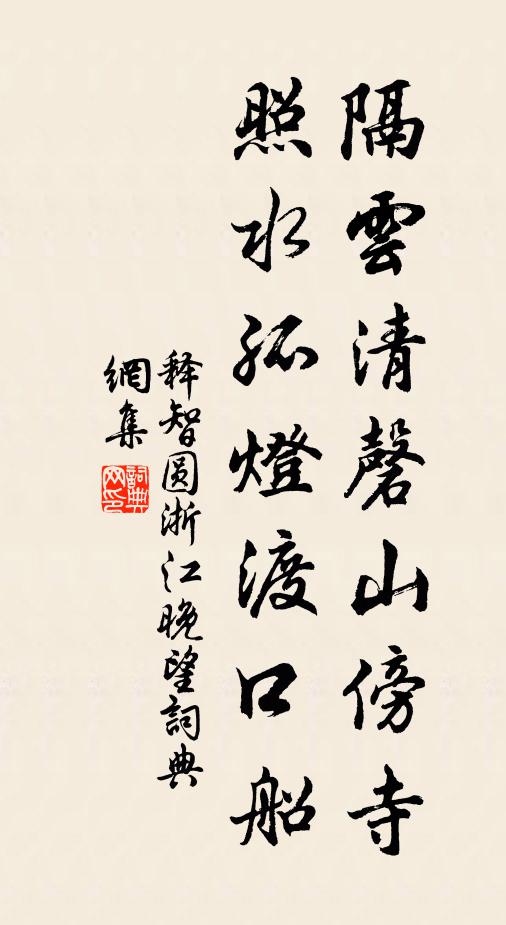 隔雲清磬山傍寺
照水孤燈渡口船
释智圆浙江晚望詞典
網集
詞典网印